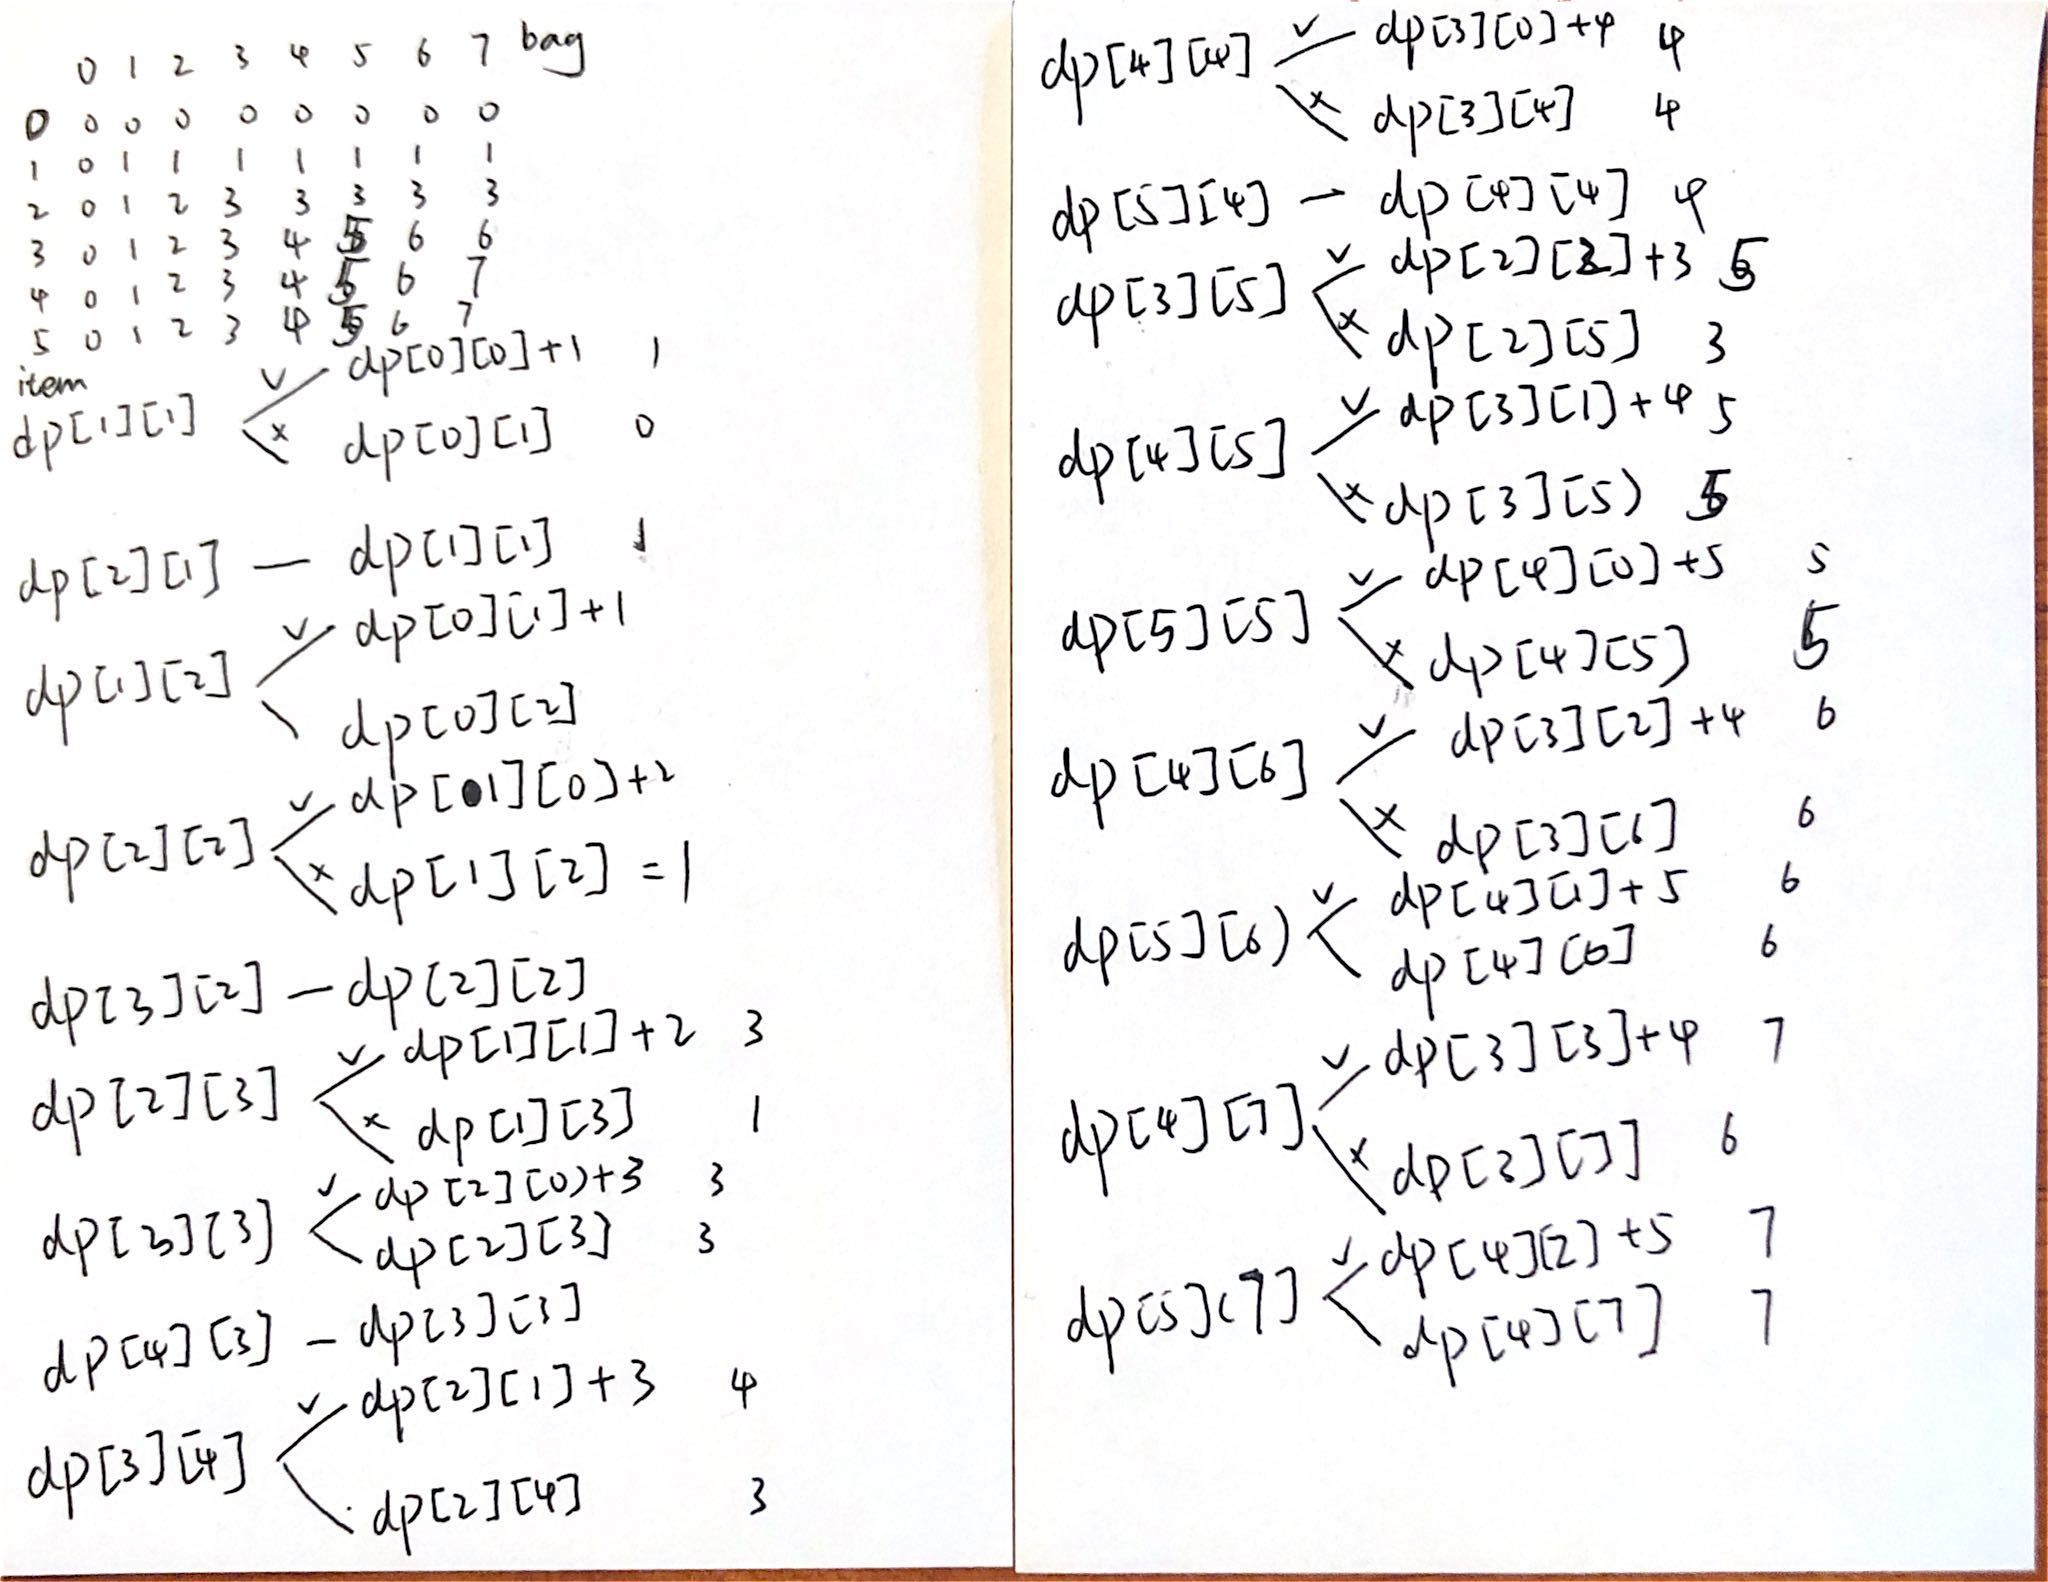 0 1 2 3 4 5 6 7 bag
0 0 0 0 0 0 0 0 0
1 0 1 1 1 1 1 1 1
2 0 1 2 3 3 3 3 3
3 0 1 2 3 4 5 6 6
4 0 1 2 3 4 5 6 7
5 0 1 2 3 4 5 6 7
item
✓ dp[0][0]+1 1
dp[1][1]
× dp[0][1] 0
dp[2][1] — dp[1][1] 1
✓ dp[0][1]+1
dp[1][2]
dp[0][2]
✓ dp[1][0]+2
dp[2][2]
× dp[1][2] = 1
dp[3][2] — dp[2][2]
✓ dp[1][1]+2 3
dp[2][3]
× dp[1][3] 1
✓ dp[2][0)+3 3
dp[3][3]
dp[2][3] 3
dp[4][3] — dp[3][3]
✓ dp[2][1]+3 4
dp[3][4]
dp[2][4] 3
✓ dp[3][0]+4 4
dp[4][4]
× dp[3][4] 4
dp[5][4] — dp[4][4] 4
✓ dp[2][2]+3 5
dp[3][5]
× dp[2][5] 3
✓ dp[3][1]+4 5
dp[4][5]
× dp[3][5) 5
✓ dp[4][0]+5 5
dp[5][5]
× dp[4][5] 5
✓ dp[3][2]+4 6
dp[4][6]
× dp[3][6] 6
✓ dp[4][1]+5 6
dp[5][6)
dp[4][6] 6
✓ dp[3][3]+4 7
dp[4][7]
× dp[3][7] 6
✓ dp[4][2]+5 7
dp[5][7]
dp[4][7] 7